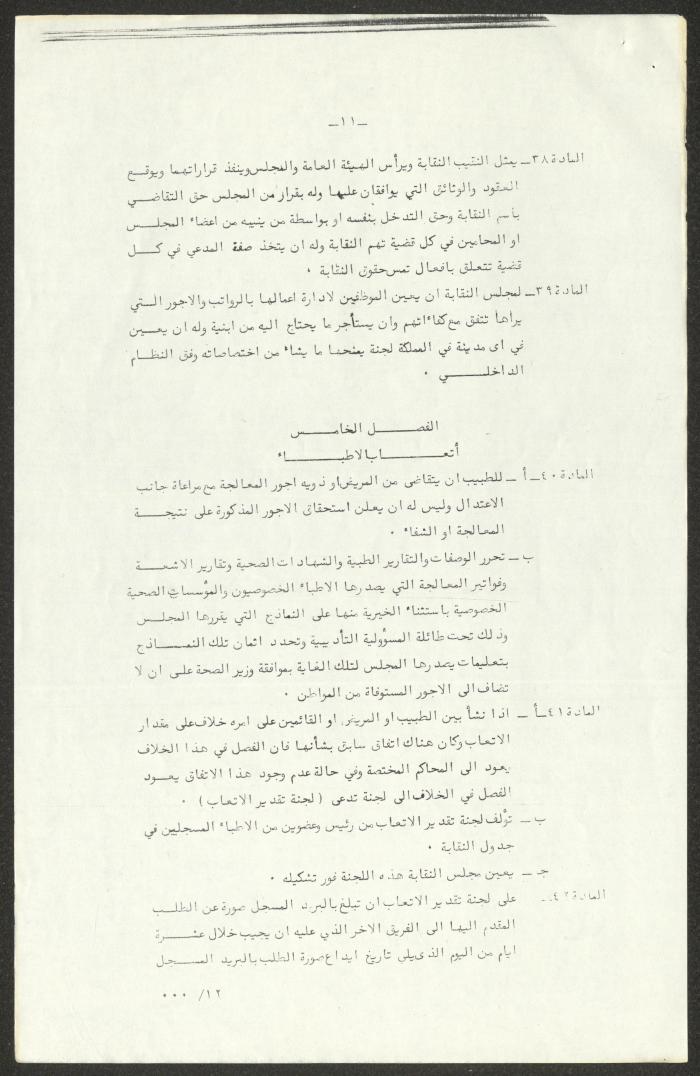 -١١-
المادة ٣٨ـ يمثل النقيب النقابة ويرأس الهيئة العامة والمجلس وينفذ قراراتهما ويوقع
العقود والوثائق التي يوافقان عليها وله بقرار من المجلس حق التقاضي
بأسم النقابة وحق التدخل بنفسه او بواسطة من ينيبه من اعضاء المجلس
او المحامين في كل قضية تهم النقابة وله ان يتخذ صفة المدعي في كل
قضية تتعلق بافعال تمس حقوق النقابة ٠
المادة ٣٩ـ لمجلس النقابة ان يعين الموظفين لادارة اعمالها بالرواتب والاجور التي
يراها تتفق مع كفاءاتهم وان يستأجر ما يحتاج اليه من ابنية وله ان يعين
في اى مدينة في المملكة لجنة يمنحها ما يشاء من اختصاصاته وفق النظام
الداخلي ٠
الفصل الخامس
أتعاب الاطباء
المادة ٤٠ـ أ ـ للطبيب ان يتقاضى من المريض او ذويه اجور المعالجة مع مراعاة جانب
الاعتدال وليس له ان يعلن استحقاق الاجور المذكورة على نتيجة
المعالجة او الشفاء ٠
ب ـ تحرر الوصفات والتقارير الطبية والشهادات الصحية وتقارير الاشعة
وفواتير المعالجة التي يصدرها الاطباء الخصوصيون والمؤسسات الصحية
الخصوصية باستثناء الخيرية منها على النماذج التي يقررها المجلس
وذلك تحت طائلة المسؤولية التأديبية وتحدد اثمان تلك النماذج
بتعليمات يصدرها المجلس لتلك الغاية بموافقة وزير الصحة على ان لا
تضاف الى الاجور المستوفاة من المواطن ٠
المادة ٤١ـ أ ـ اذا نشأ بين الطبيب او المريض او القائمين على امره خلاف على مقدار
الاتعاب وكان هناك اتفاق سابق بشأنها فان الفصل في هذا الخلاف
يعود الى المحاكم المختصة وفي حالة عدم وجود هذا الاتفاق يعود
الفصل في الخلاف الى لجنة تدعى ( لجنة تقدير الاتعاب ) ٠
ب ـ تؤلف لجنة تقدير الاتعاب من رئيس وعضوين من الاطباء المسجلين في
جدول النقابة ٠
جـ ـ يعين مجلس النقابة هذه اللجنة فور تشكيله ٠
المادة ٤٢ـ على لجنة تقدير الاتعاب ان تبلغ بالبريد المسجل صورة عن الطلب
المقدم اليها الى الفريق الاخر الذي عليه ان يجيب خلال عشرة
ايام من اليوم الذي يلي تاريخ ايداع صورة الطلب بالبريد المسجل
١٢/ ٠٠٠